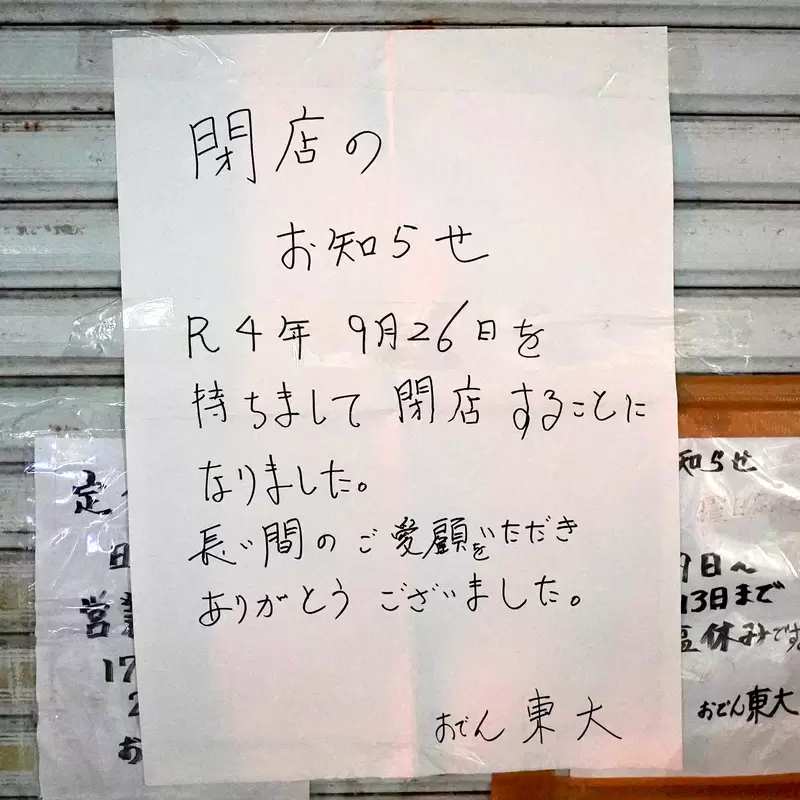 閉店の
お知らせ
R4年 9月26日を
持ちまして 閉店することに
なりました。
長い間のご愛顧をいただき
ありがとうございました。
おでん 東大
定
営業
17
2
お
知らせ
9日〜
13日まで
休みです
おでん東大